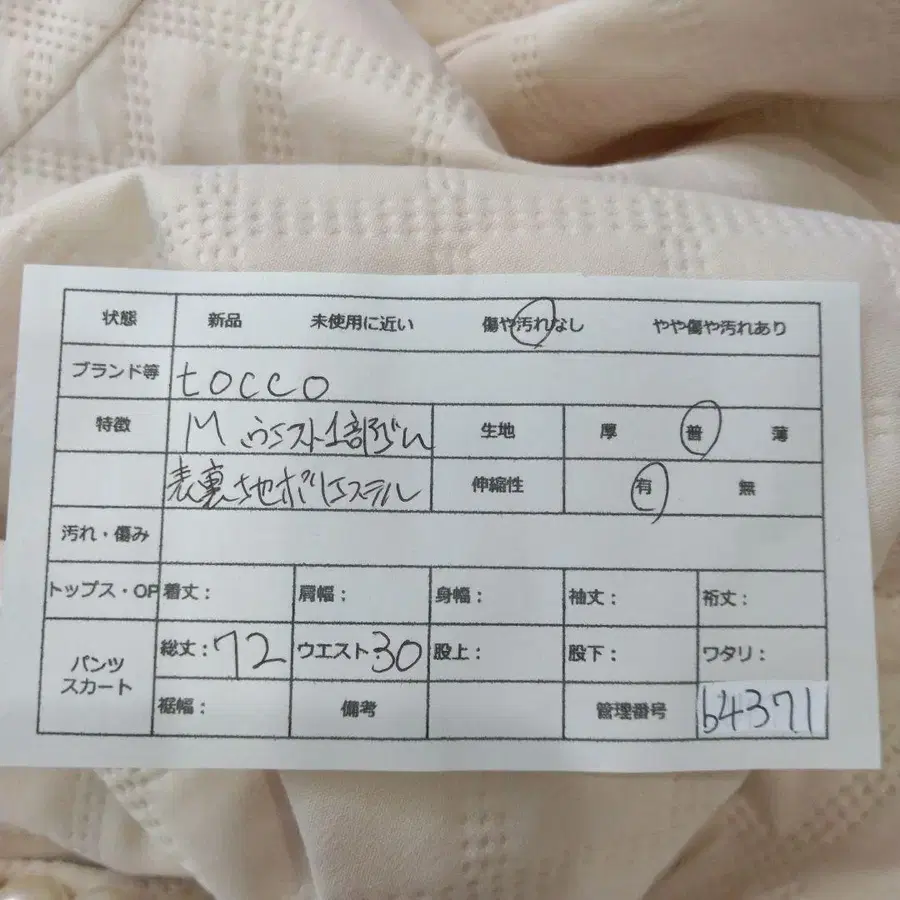 状態 新品 未使用に近い 傷や汚れなし やや傷や汚れあり
ブランド等 tocco
特徴 M ウエスト1部ゴム 生地 厚 普 薄
表裏地ポリエステル 伸縮性 有 無
汚れ・傷み
トップス・OP 着丈: 肩幅: 身幅: 袖丈: 裄丈:
パンツ スカート 総丈:72 ウエスト30 股上: 股下: ワタリ:
裾幅: 備考 管理番号 b4371